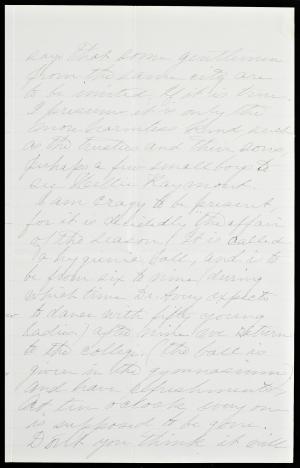 says that some gentlemen
from the same city are
to be invited, if it is true.
I presume it is only the
more harmless kind such
as the trustees and their sons,
perhaps a few small boys to
see Nellie Raymond.
I am crazy to be present,
for it is decidedly "the affair
of the season." It is called
a hygienic ball, and is to
be from six to nine (during
which time Dr. Avery expects
to dance with fifty young
ladies,) after nine we return
to the college, (the ball is
given in the gymnasium)
and have refreshments.
At ten o'clock every one
is supposed to be gone.
Don't you think it will